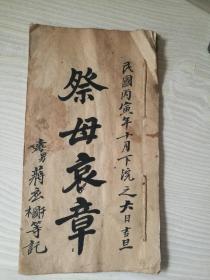 民國丙寅年十月下浣之六日吉旦
祭母哀章
男蔣丞櫥等記